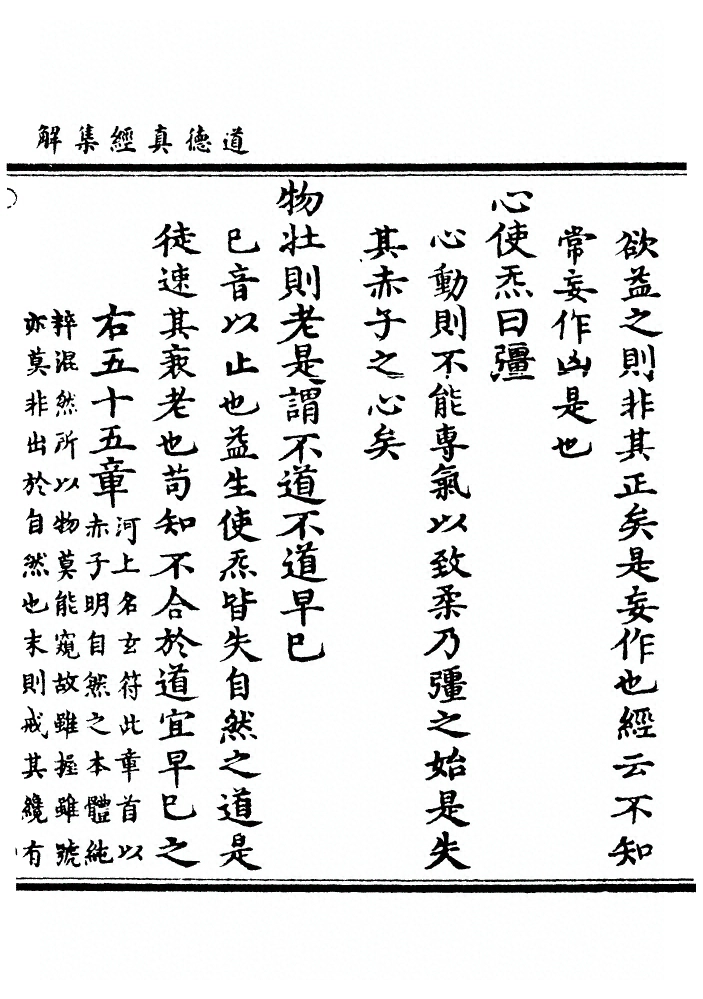 道德真經集解
欲益之則非其正矣是妄作也經云不知
常妄作凶是也
心使炁曰彊
心動則不能專氣以致柔乃彊之始是失
其赤子之心矣
物壯則老是謂不道不道早已
已音以止也益生使炁皆失自然之道是
徒速其衰老也苟知不合於道宜早已之
右五十五章
河上名玄符此章首以
赤子明自然之本體純
粹混然所以物莫能窺故雖握雖號
亦莫非出於自然也末則戒其纔有